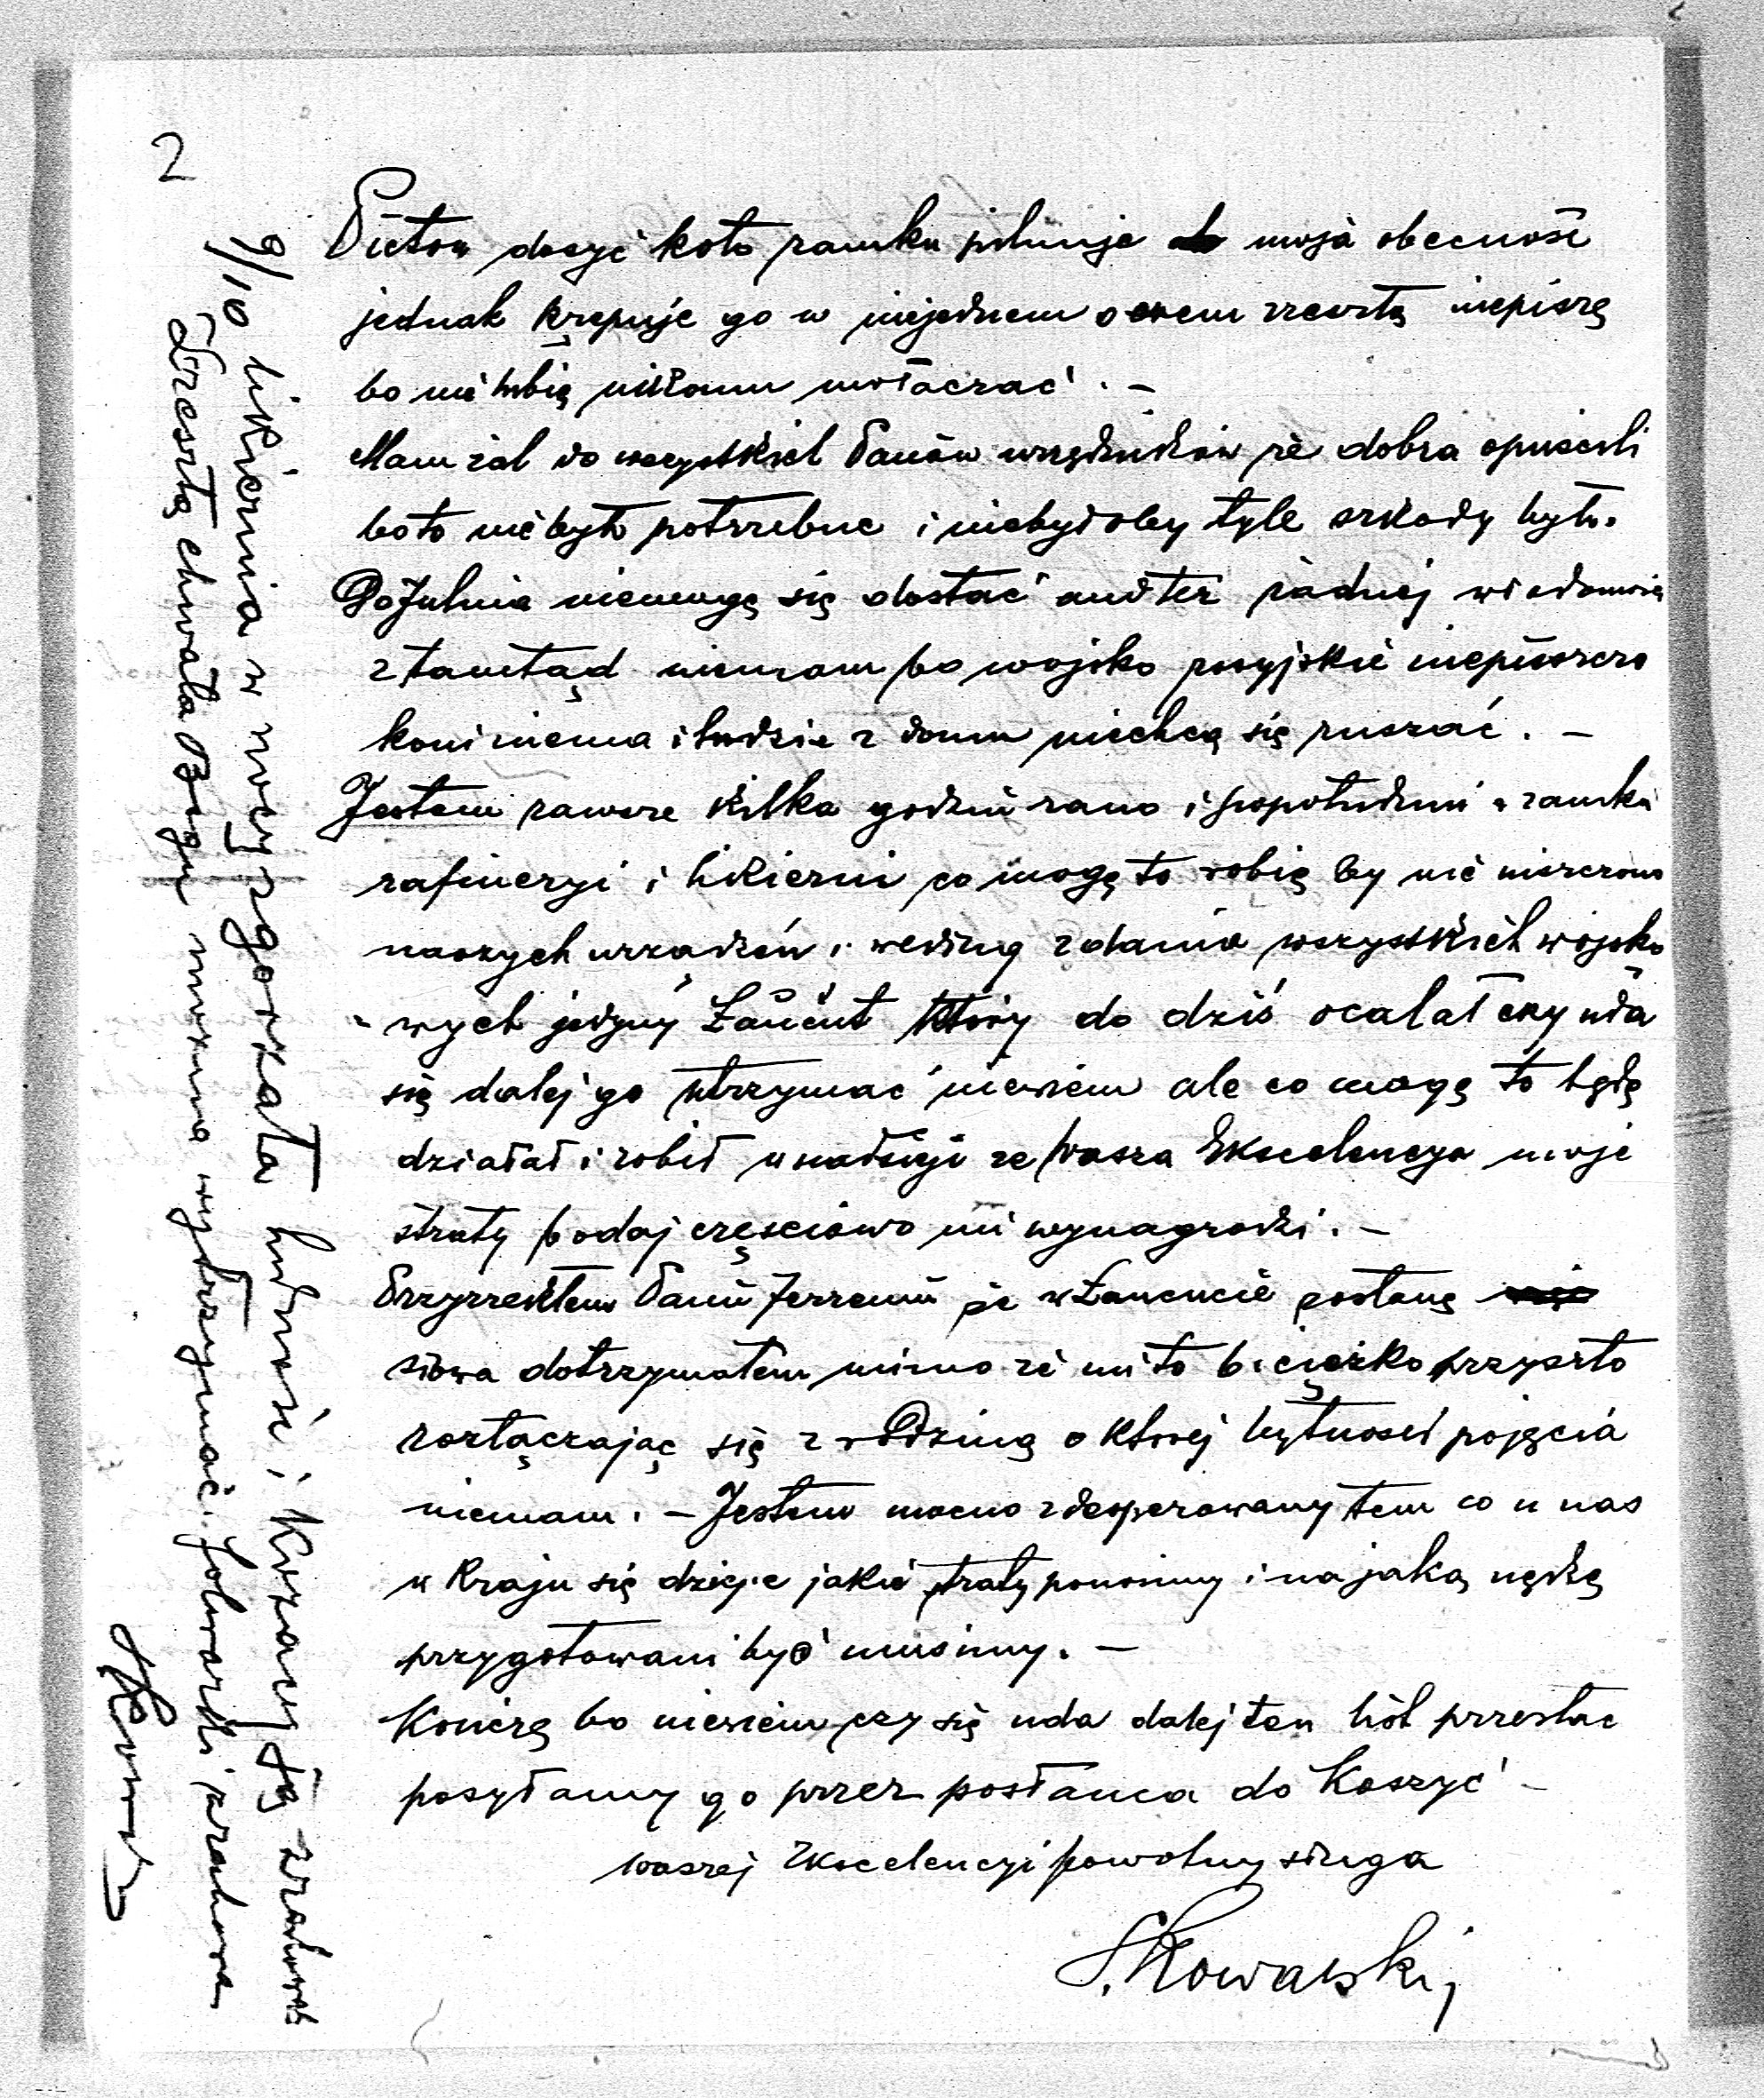 2
Pieton dosyć koło zamku pilnuje moja obecność
jednak krępuje go w niejednem oczem zresztą niepiszę
bo nie lubię nikomu
Mam żal do wszystkich Panów urzędników że dobra opuścili
bo to nie było potrzebne i niebyłoby tyle szkody było.
Do Julina niemogę się dostać anż też żadnej wiadomości
ztamtąd niemam bo wojsko rosyjskie niepuszcza
koni niema i ludzie z domu niechcą się ruszać. —
Jestem zawsze kilka godzin rano i popołudniu w zamku
rafineryi i likierni co mogę to robię by nie niszczono
naszych urządzeń i według zdania wszystkich wojsko
-wych jedyny Łańcut który do dziś ocalał czy uda
się dalej go utrzymać niewiem ale co mogę to będę
działał i robił w nadzieji że Wasza Ekscelencya moje
straty bodaj częściowo mi wynagrodzi. —
Przyrzekłem Panu Jerzemu że w Łancucie zostanę
słowa dotrzymałem mimo że mi to b. ciężko przyszło
rozłączając się z rodziną o której bytności pojęcia
niemam. — Jestem mocno zdesperowany tem co u nas
w kraju się dzieje jakie straty ponosimy i na jaką nędzę
przygotowani być musimy. —
Kończę bo niewiem czy się uda dalej ten list przesłac
posyłamy go przez posłańca do Koszyc —
Waszej Ekscelencyi powolny sługa
S. Kowalski
9/10 likiernia w nocy zgorzała ludność i Kozacy ją zrabowali
Zresztą chwała Bogu można wytrzymać. Folwarki zrabowane
SKowalski